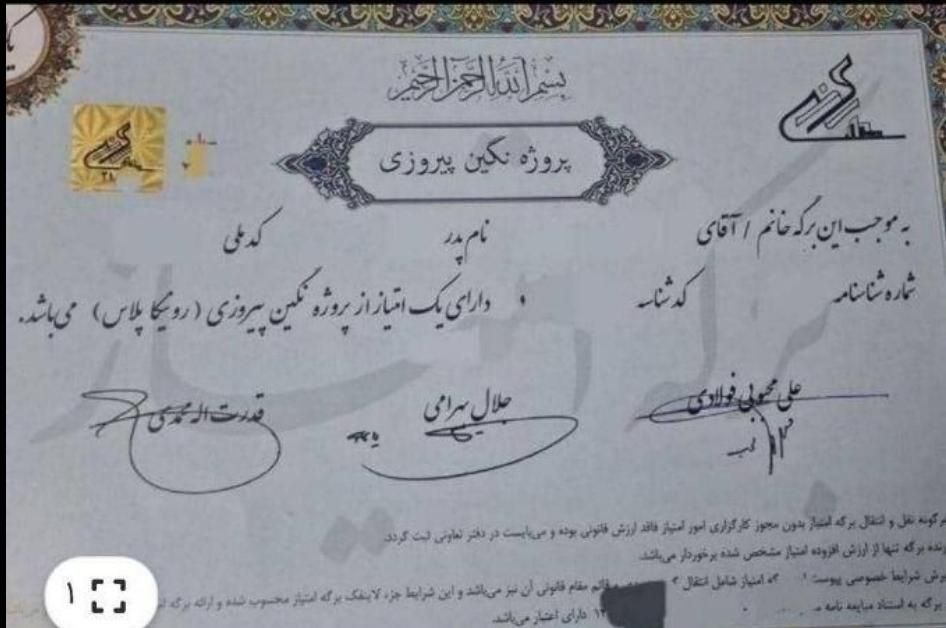 بسم الله الرحمن الرحیم
پروژه نگین پیروزی
۲۸
به موجب این برگه خانم / آقای نام پدر کد ملی
شماره شناسنامه کد شناسه دارای یک امتیاز از پروژه نگین پیروزی (رونیکا پلاس) می‌باشد.
علی محبوبی فولادی جلال بهرامی قدرت اله محمدی
هرگونه نقل و انتقال برگه امتیاز بدون مجوز کارگزاری امور امتیاز فاقد ارزش قانونی بوده و می‌بایست در دفتر تعاونی ثبت گردد.
برگه تنها از ارزش افزوده امتیاز مشخص شده برخوردار می‌باشد.
شرایط خصوصی پیوست امتیاز شامل انتقال قائم مقام قانونی آن نیز می‌باشد و این شرایط جزء لاینفک برگه امتیاز محسوب شده و ارائه برگه
برگه به استناد مبایعه نامه دارای اعتبار می‌باشد.
برگه امتیاز
۱